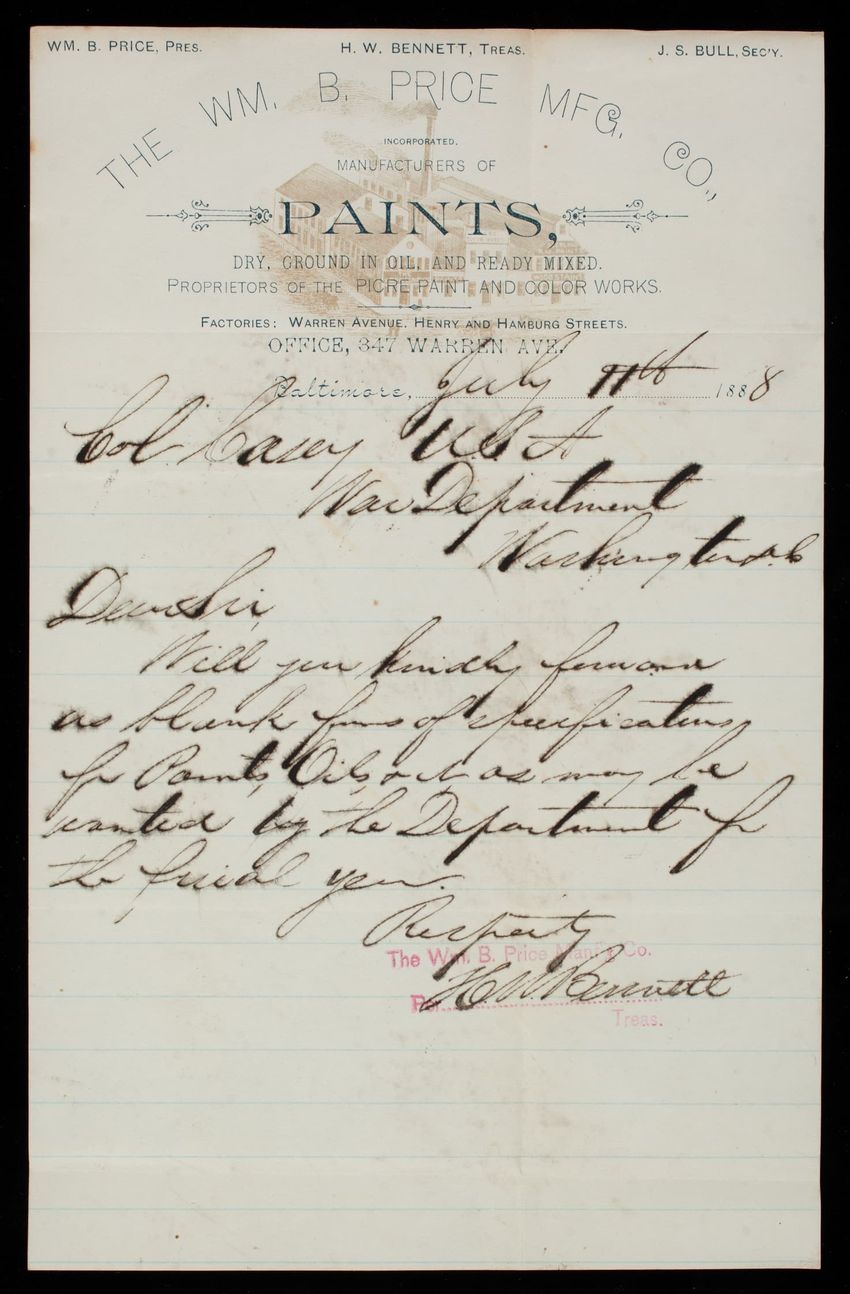 WM. B. PRICE, PRES. H. W. BENNETT, TREAS. J. S. BULL, SEC'Y.
THE WM. B. PRICE MFG. CO.,
INCORPORATED.
MANUFACTURERS OF
PAINTS,
DRY, GROUND IN OIL, AND READY MIXED.
PROPRIETORS OF THE PICRE PAINT AND COLOR WORKS.
FACTORIES: WARREN AVENUE, HENRY AND HAMBURG STREETS.
OFFICE, 347 WARREN AVE.
Baltimore, July 11th 1888
Col. Casey U.S.A
War Department
Washington D.C
Dear Sir,
Will you kindly forward
us blank forms of specifications
for Paints, Oils, &c as may be
wanted by the Department for
the fiscal year.
Respecty
The Wm. B. Price Manf'g Co.
Per H W Bennett
Treas.